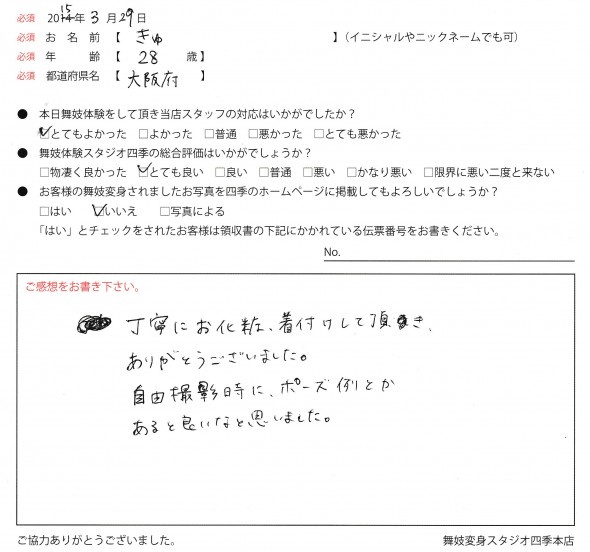 必須 2014年 15 3月29日
必須 お名前【 きゅ 】（イニシャルやニックネームでも可）
必須 年齢【 28 歳】
必須 都道府県名【 大阪府 】
● 本日舞妓体験をして頂き当店スタッフの対応はいかがでしたか？
☑とてもよかった □よかった □普通 □悪かった □とても悪かった
● 舞妓体験スタジオ四季の総合評価はいかがでしょうか？
□物凄く良かった ☑とても良い □良い □普通 □悪い □かなり悪い □限界に悪い二度と来ない
● お客様の舞妓変身されましたお写真を四季のホームページに掲載してもよろしいでしょうか？
□はい ☑いいえ □写真による
「はい」とチェックをされたお客様は領収書の下記にかかれている伝票番号をお書きください。
No.
ご感想をお書き下さい。
丁寧にお化粧、着付けして頂き、
ありがとうございました。
自由撮影時に、ポーズ例とか
あると良いなと思いました。
ご協力ありがとうございました。 舞妓変身スタジオ四季本店